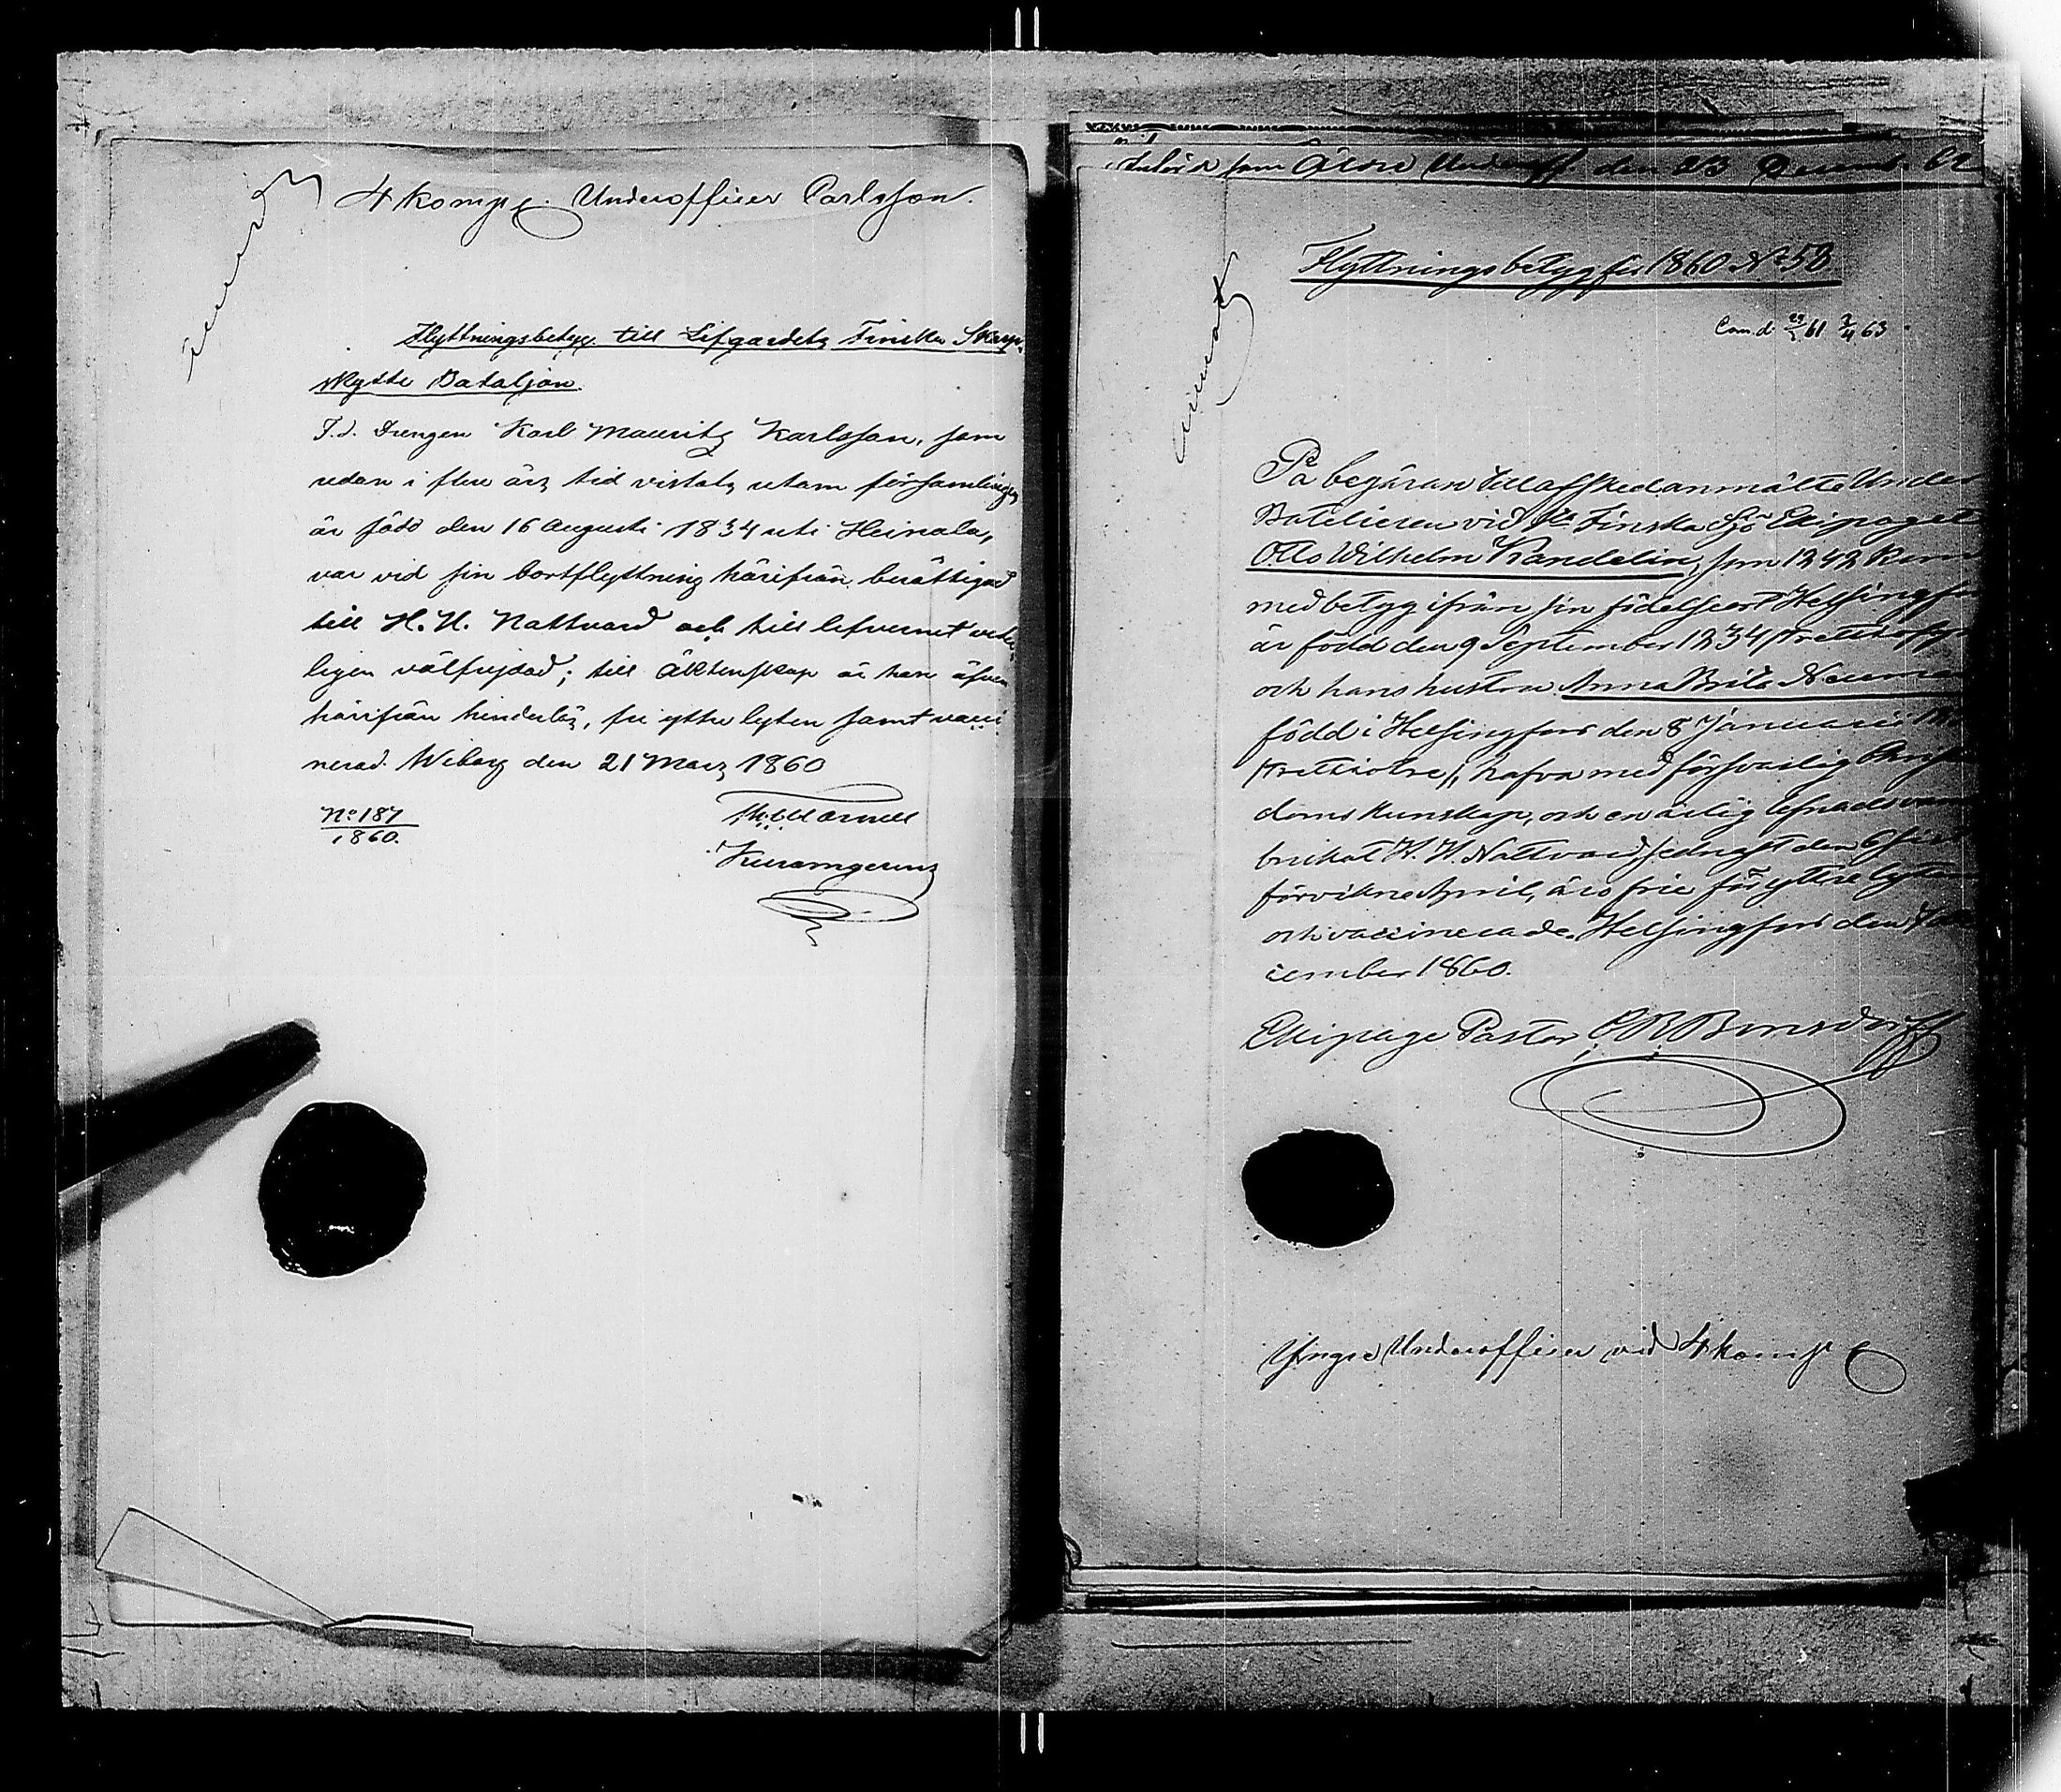 4 komp. Underofficer Carlsson.
Flyttningsbetyg till Lifgardets Finska Skarp-
skytte Bataljon.
F.d. Drengen Karl Mauritz Karlsson, som
redan i flere års tid vistats utom församlingen
är född den 16 Augusti 1834 uti Heinola,
var vid sin bortflyttning härifrån berättigad
till H. H. Nattvard och till lefvernet veter-
ligen välfrejdad; till Äktenskap är han äfven
härifrån hinderlös, fri yttre lyten samt vacci-
nerad. Wiborg den 21 Mars 1860
No 187
1860.
Kyrkoherde
som Äldre Underoff. den 23 Decemb. 62
Flyttningsbetyg för 1860 No 58.
Com.d. 61 2/4 63
På begäran till afsked anmälte Under
Båtsmannen vid 1sta Finska Sjö Ekipaget
Otto Wilhelm Kandelin, som 1842 kom
med betyg ifrån sin födelseort Helsingfors
är född den 9 September 1834 /trettiofyra/
och hans hustru Anna Brita
född i Helsingfors den 8 Januarii
/trettiotre/, hafva med försvarlig Christen-
doms kunskap, och en ärlig lefnadsvandel
brukat H. H. Nattvard, sednast den 6
förvikne April, äro frie för yttre lyten
och vaccinerade. Helsingfors den De-
cember 1860.
Ekipage Pastor
Yngre Underofficer vid 4 komp